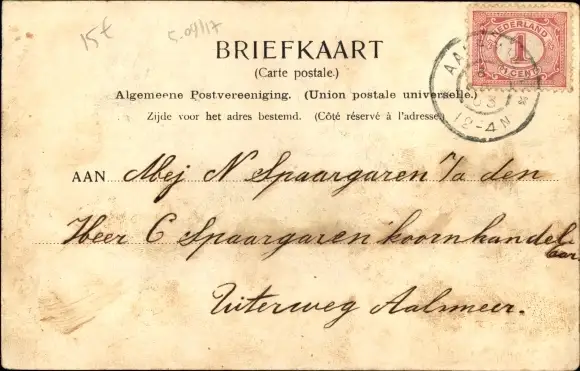 15€
5.09/17
NEDERLAND
1
CENT
AA
03
12-4N
BRIEFKAART
(Carte postale.)
Algemeene Postvereeniging. (Union postale universelle.)
Zijde voor het adres bestemd. (Côté réservé à l'adresse.)
AAN Mej N Spaargaren p/a den
Heer C Spaargaren koornhandel
aar
Uiterweg Aalsmeer.